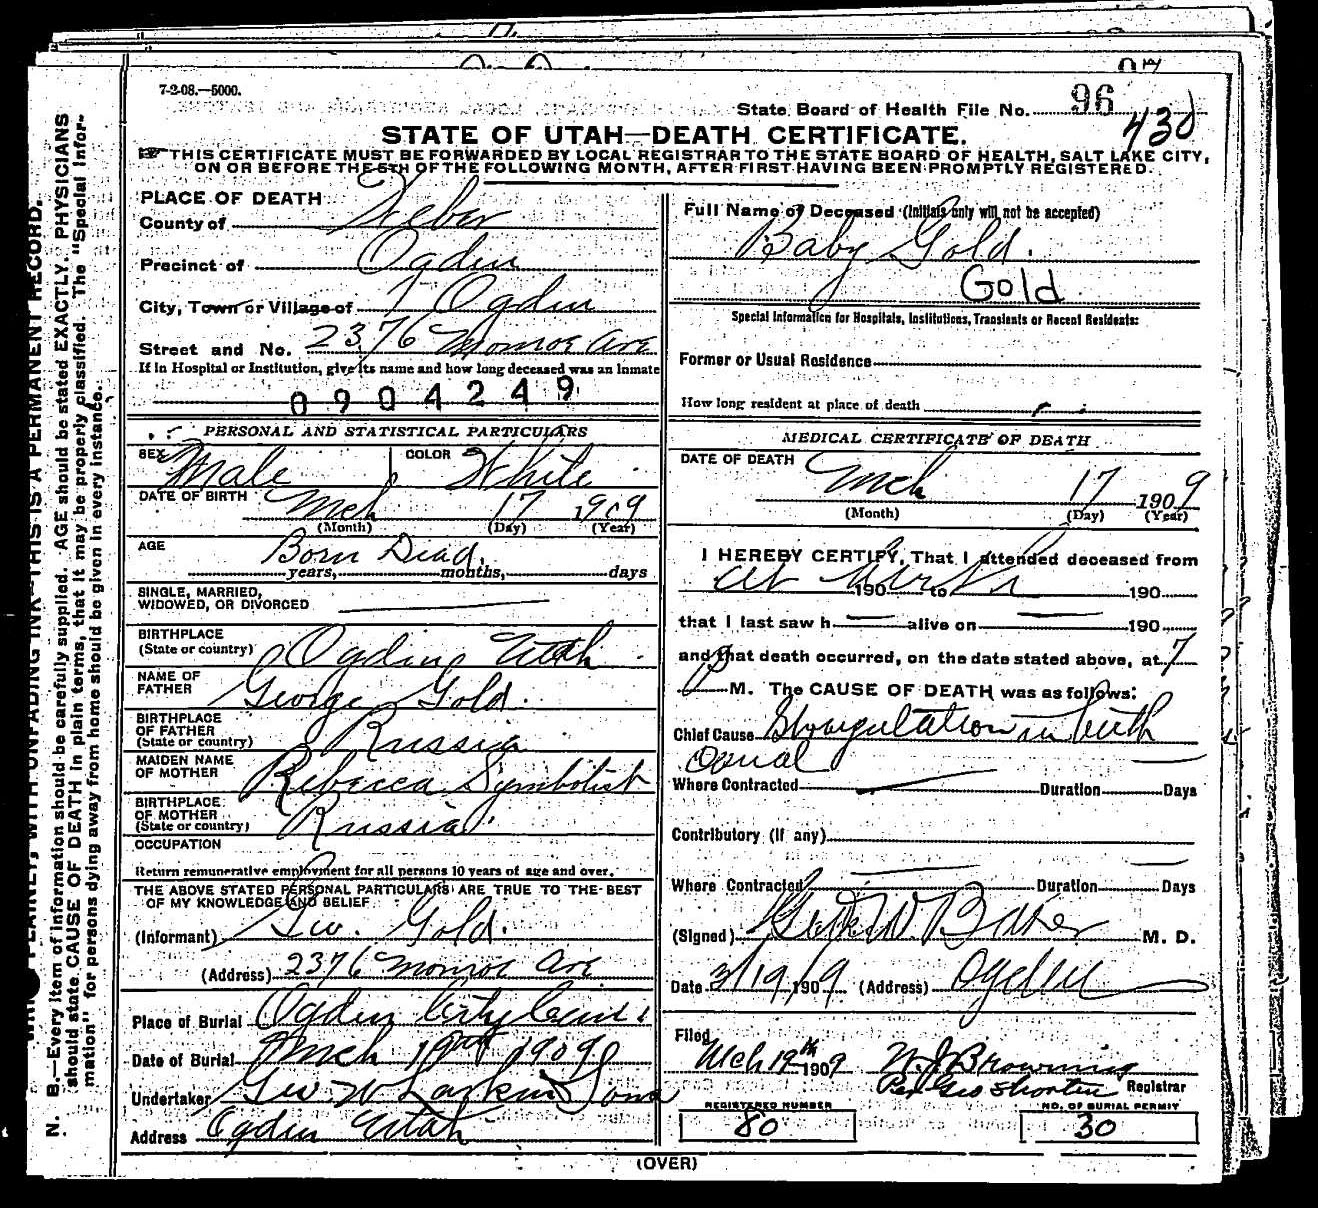 7-2-08.—5000.
State Board of Health File No. 96
430
STATE OF UTAH—DEATH CERTIFICATE.
THIS CERTIFICATE MUST BE FORWARDED BY LOCAL REGISTRAR TO THE STATE BOARD OF HEALTH, SALT LAKE CITY,
ON OR BEFORE THE 5TH OF THE FOLLOWING MONTH, AFTER FIRST HAVING BEEN PROMPTLY REGISTERED.
PLACE OF DEATH
County of Weber
Precinct of Ogden
City, Town or Village of Ogden
Street and No. 2376 Monroe Ave
If in Hospital or Institution, give its name and how long deceased was an inmate
0904249
PERSONAL AND STATISTICAL PARTICULARS
SEX Male COLOR White
DATE OF BIRTH Mch 17 1909
(Month) (Day) (Year)
AGE Born Dead.
years, months, days
SINGLE, MARRIED,
WIDOWED, OR DIVORCED
BIRTHPLACE
(State or country) Ogden Utah
NAME OF
FATHER George Gold.
BIRTHPLACE
OF FATHER
(State or country) Russia
MAIDEN NAME
OF MOTHER Rebecca Symbolist
BIRTHPLACE
OF MOTHER
(State or country) Russia
OCCUPATION
Return remunerative employment for all persons 10 years of age and over.
THE ABOVE STATED PERSONAL PARTICULARS ARE TRUE TO THE BEST
OF MY KNOWLEDGE AND BELIEF
(Informant) Geo. Gold.
(Address) 2376 Monroe Ave
Place of Burial Ogden City Cem.
Date of Burial Mch 19th 1909
Undertaker Geo W Larkin & Sons
Address Ogden Utah
Full Name of Deceased (Initials only will not be accepted)
Baby Gold.
Gold
Special Information for Hospitals, Institutions, Transients or Recent Residents:
Former or Usual Residence
How long resident at place of death
MEDICAL CERTIFICATE OF DEATH
DATE OF DEATH Mch 17 1909
(Month) (Day) (Year)
I HEREBY CERTIFY, That I attended deceased from
at birth 190 to 190
that I last saw h alive on 190
and that death occurred, on the date stated above, at 7
P M. The CAUSE OF DEATH was as follows:
Chief Cause Strangulation in birth
Canal
Where Contracted Duration Days
Contributory (if any)
Where Contracted Duration Days
(Signed) W. Baker M. D.
Date 3/19/1909 (Address) Ogden
Filed
Mch 19th 1909 W. J. Browning
Per Geo Shorten Registrar
REGISTERED NUMBER NO. OF BURIAL PERMIT
80 30
(OVER)
PLAINLY, WITH UNFADING INK—THIS IS A PERMANENT RECORD.
N. B.—Every item of information should be carefully supplied. AGE should be stated EXACTLY. PHYSICIANS
should state CAUSE OF DEATH in plain terms, that it may be properly classified. The "Special Infor-
mation" for persons dying away from home should be given in every instance.